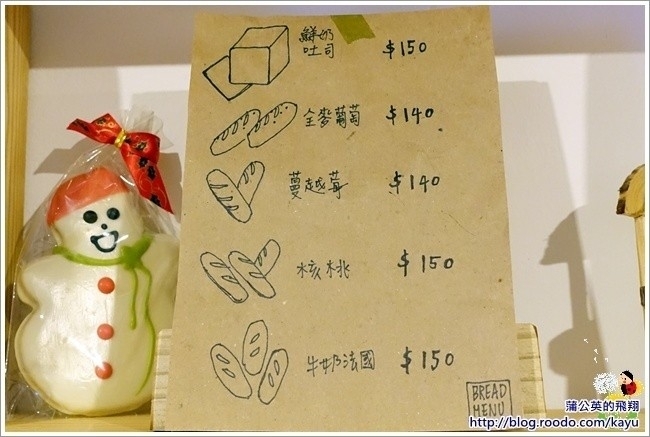 鮮奶
吐司 $150
全麥葡萄 $140
蔓越莓 $140
核桃 $150
牛奶法國 $150
BREAD
MENU
蒲公英的飛翔
http://blog.roodo.com/kayu